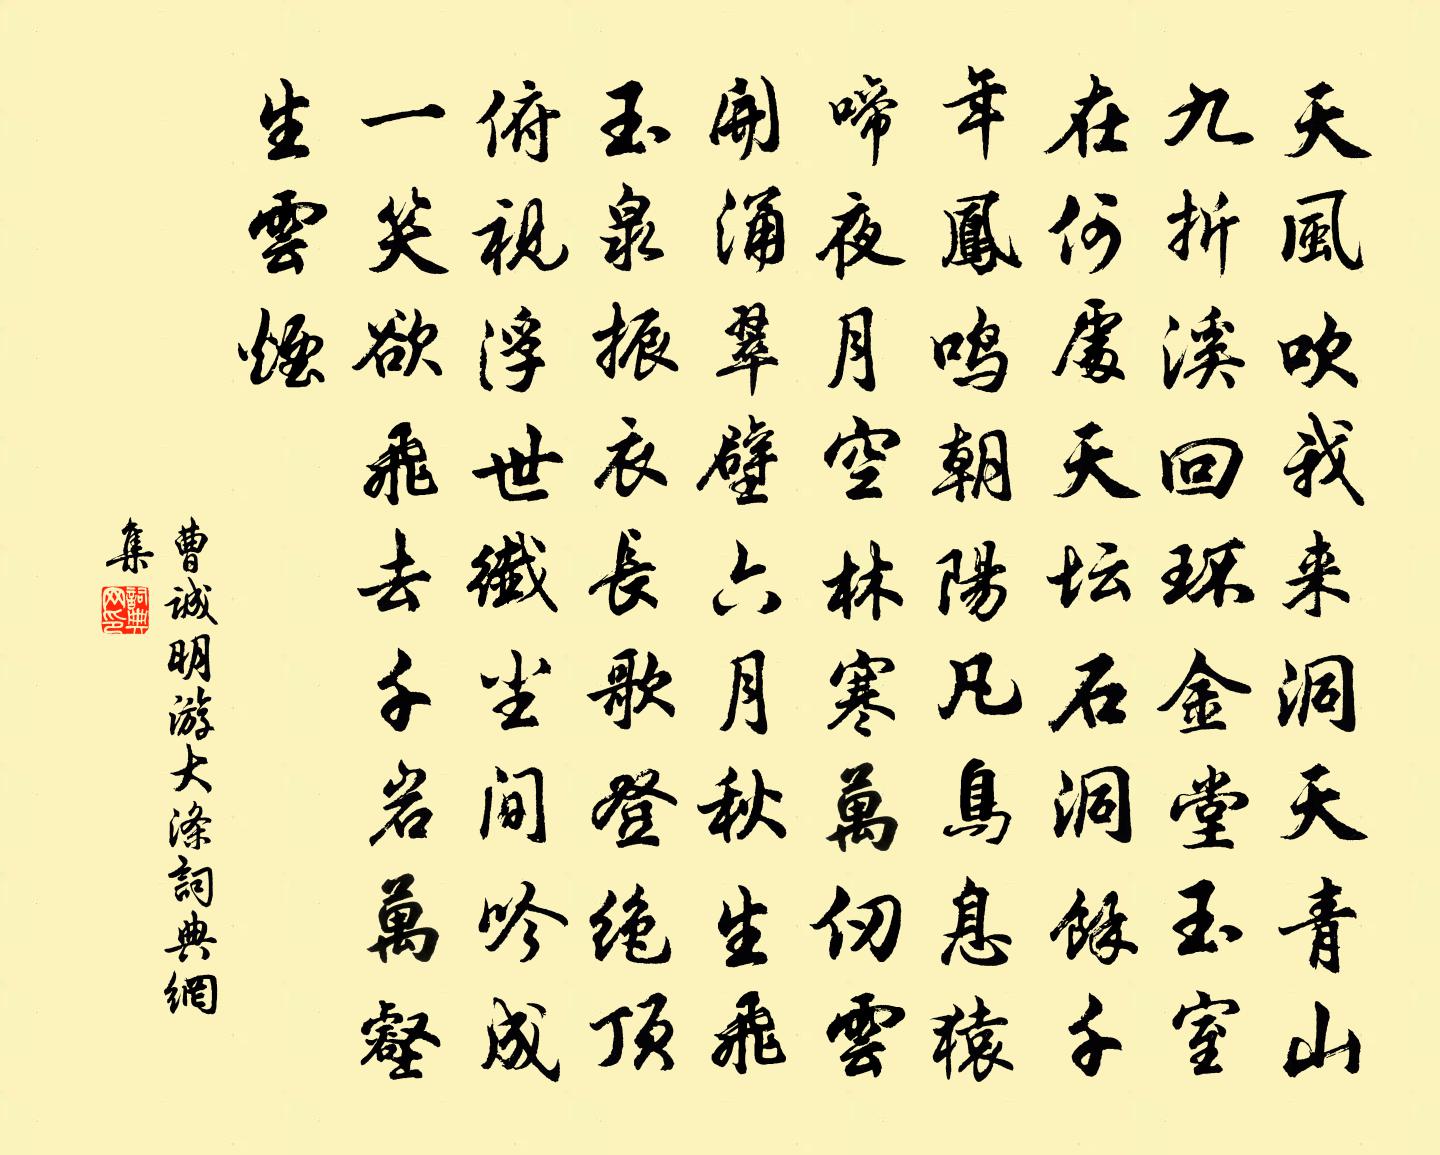 天風吹我来洞天青山
九折溪回环金堂玉室
在何處天坛石洞餘千
年鳳鸣朝陽凡鳥息猿
啼夜月空林寒萬仞雲
開涌翠壁六月秋生飛
玉泉振衣長歌登绝顶
俯視浮世纖尘间吟成
一笑欲飛去千岩萬壑
生雲煙
曹诚明游大涤詞典網
集
詞典
网印